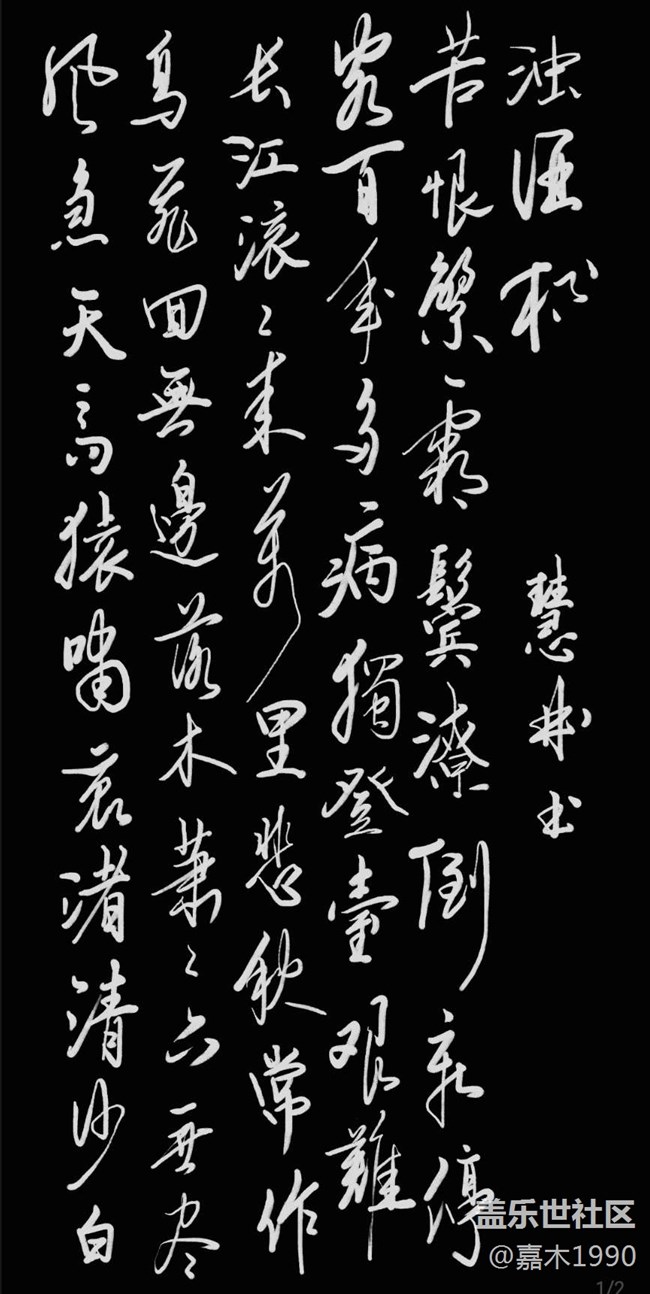 風急天高猿嘯哀渚清沙白
鳥飛回無邊落木蕭〻六無尽
长江滚〻来萬里悲秋常作
客百年多病獨登臺艰難
苦恨繁霜鬓潦倒新停
浊酒杯
慧书
盖乐世社区
@嘉木1990
1/2